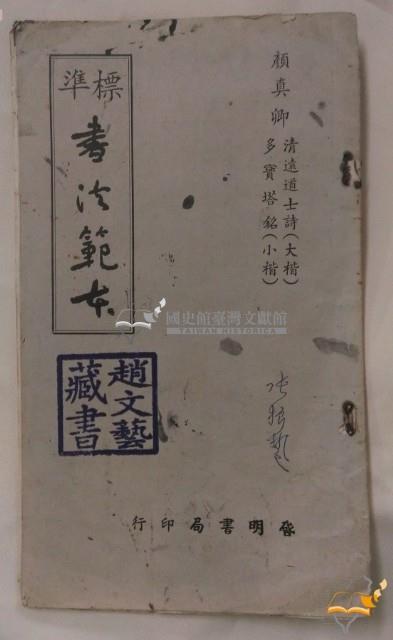 顏真卿
清遠道士詩(大楷)
多寶塔銘(小楷)
標準
書法範本
國史館臺灣文獻館
TAIWAN HISTORICA
趙文藝
藏書
啓明書局印行